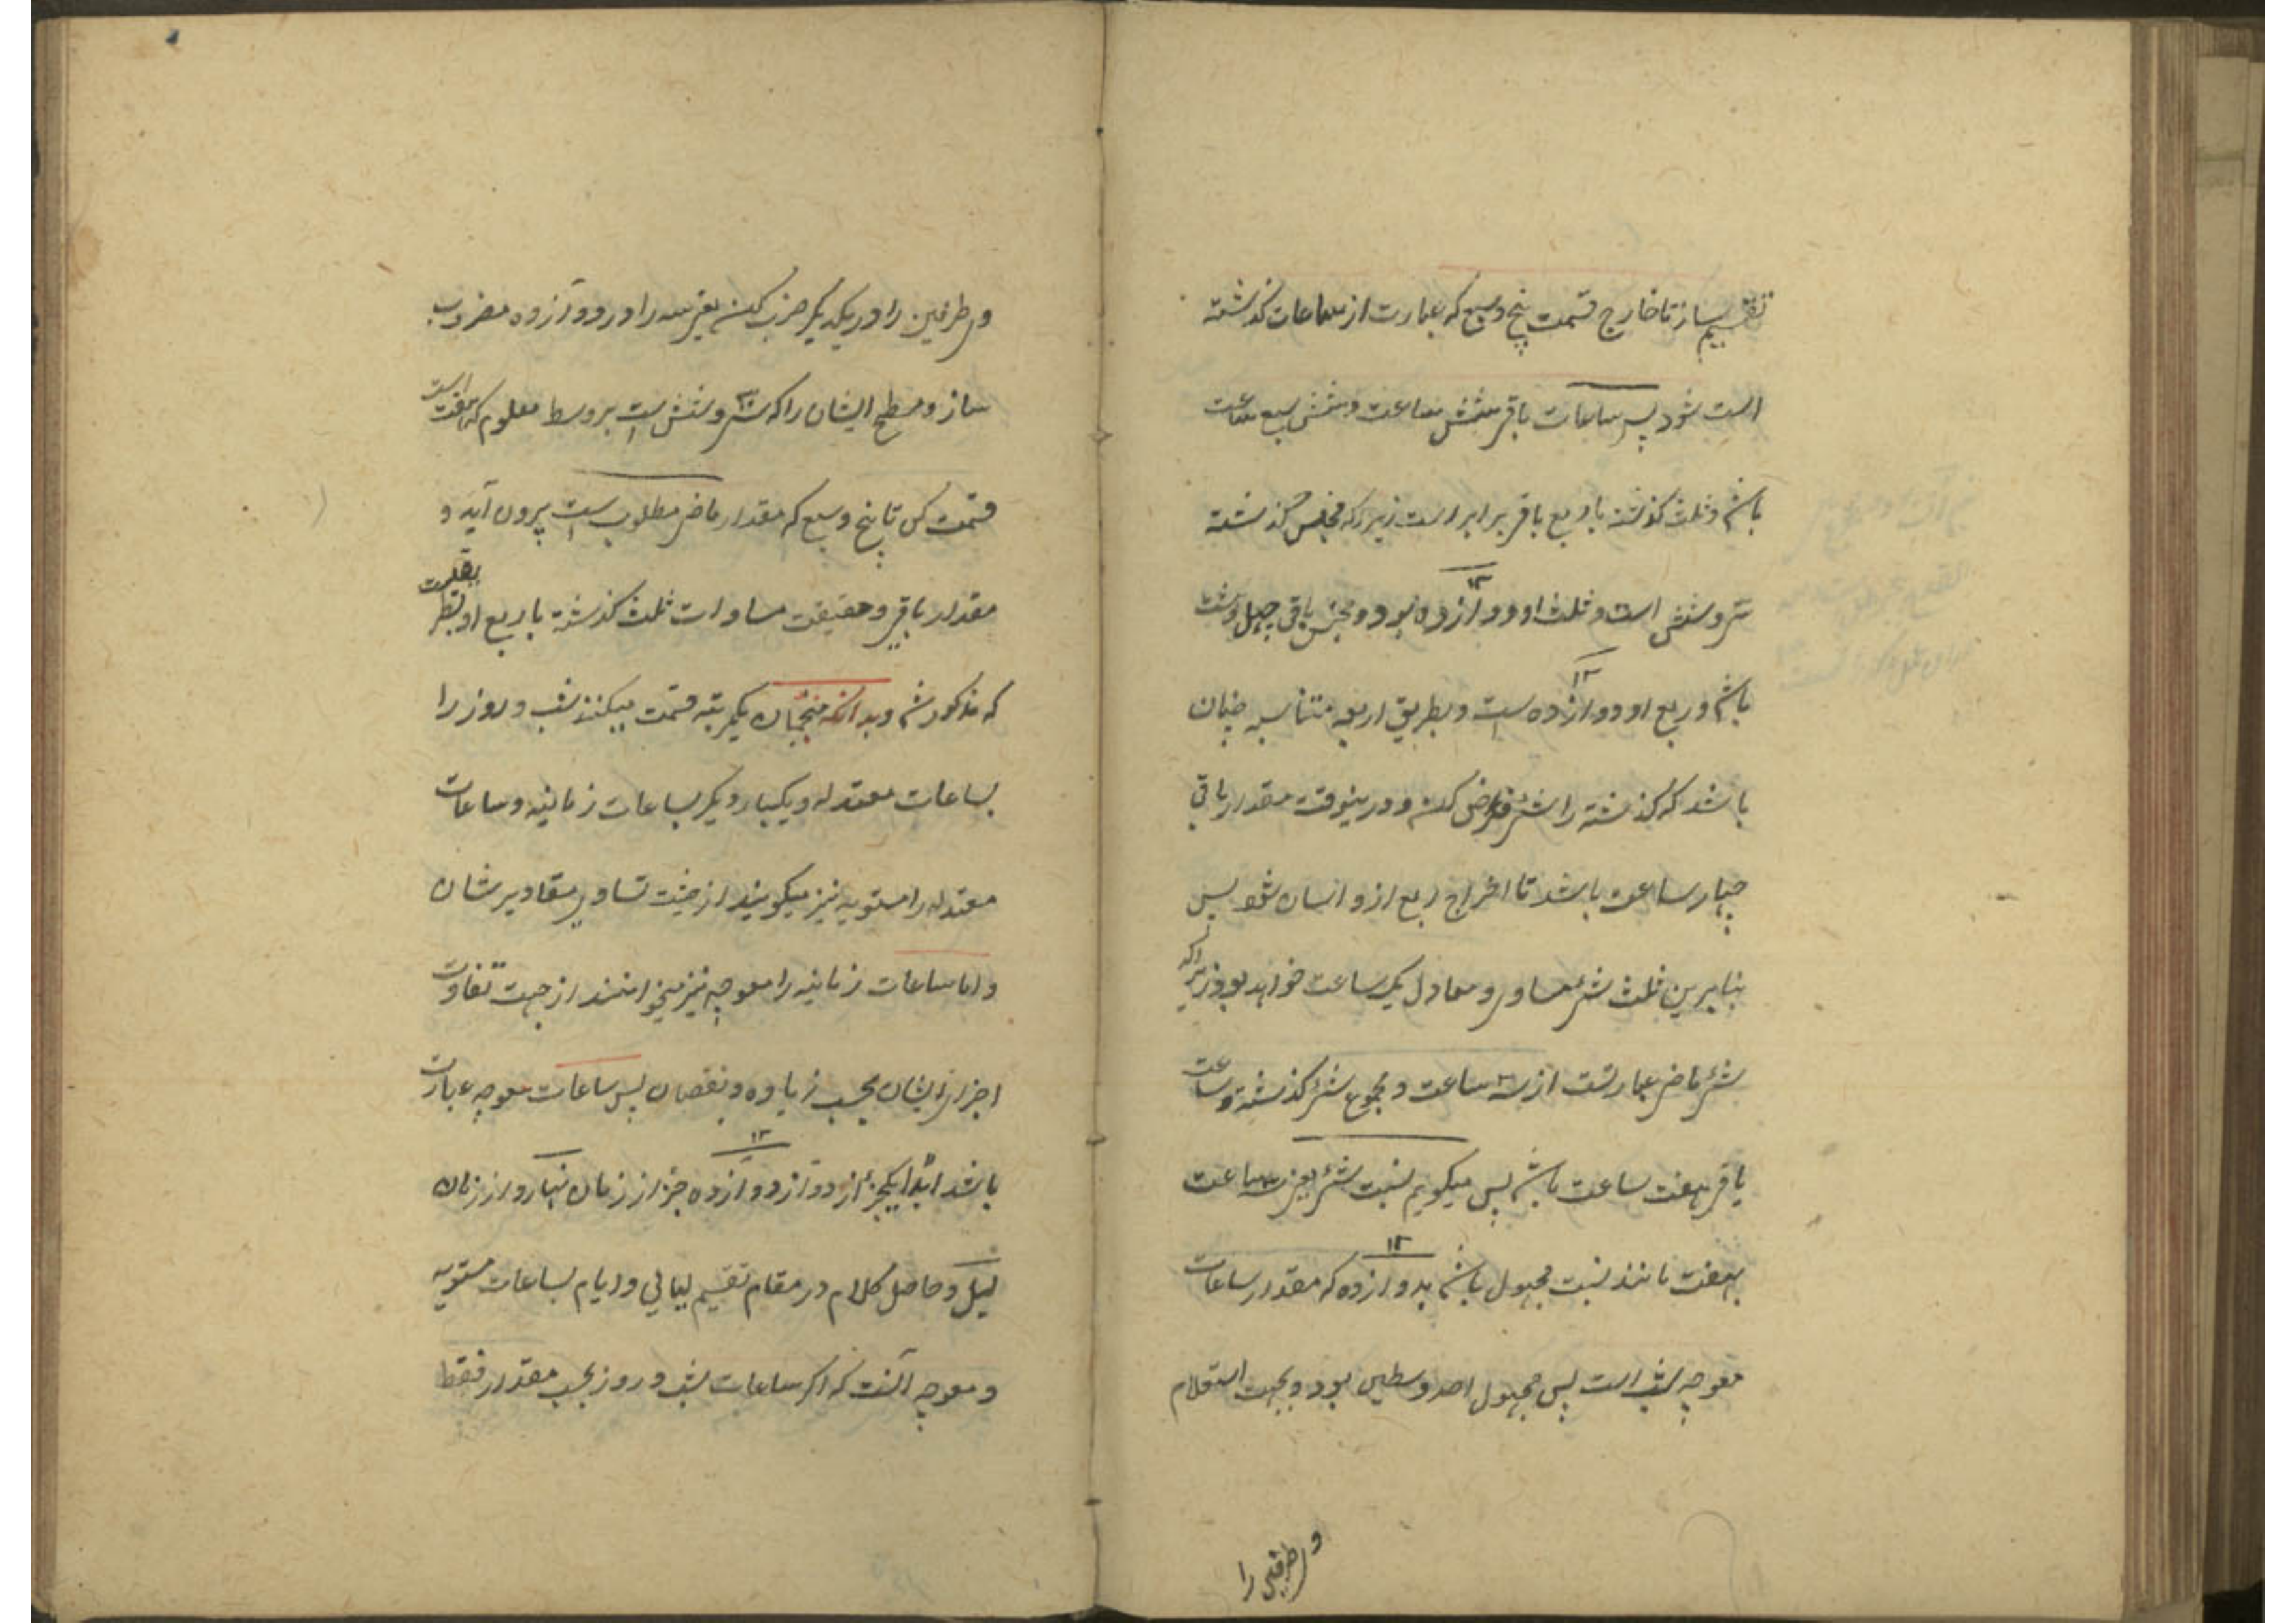 تقسیم ساز تا خارج قسمت پنج و سبع که عبارت از ساعات کذشته
است شود پس ساعات باقی شش ساعت و شش سبع ساعت
باشد و ثلث کذشته با ربع باقی برابر است زیرا که مجنس کذشته
سی و شش است و ثلث او دوازده بود و مجنس باقی چهل و هشت
باشد و ربع او دوازده است و بطریق اربعه متناسبه چنان
باشد که کذشته را شئ فرض کن و درینوقت مقدار باقی
چهار ساعت باشد تا اخراج ربع ازو اسان شود پس
بنابرین ثلث شئ مساوی و معادل یک ساعت خواهد بود زیرا که
شئ ماضی عبارتست از سه ساعت و مجموع شئ کذشته و ساعت
باقی هفت ساعت باشد پس میکویم نسبت شئ یعنی سه ساعت
بهفت مانند نسبت مجهول باشد بدوازده که مقدار ساعات
معوجه شب است پس مجهول احد وسطین بود و بجهت استعلام
و طرفین را
وی طرفین را در یکدیکر ضرب کن یعنی سه را در دوازده مضروب
ساز و مسطح ایشان را که سی و شش است بر وسط معلوم که هفت است
قسمت کن تا پنج و سبع که مقدار ماضی مطلوب است بیرون آید و
مقدار باقی و حقیقت مساوات ثلث کذشته با ربع او بطریقست
که مذکور شد و بدانکه منجمان یکمرتبه قسمت میکنند شب و روز را
بساعات معتدله و یکبار دیکر بساعات زمانیه و ساعات
معتدله را مستویه نیز میکویند از جهت تساوی مقادیر شان
و اما ساعات زمانیه را معوجه نیز میخوانند از جهت تفاوت
اجزای ایشان بحسب زیاده و نقصان پس ساعات معوجه عبارت
باشد ابدا یکجزء از دوازده جزء از زمان نهار و از زمان
لیل و حاصل کلام در مقام تقسیم لیالی و ایام بساعات مستویه
و معوجه آنست که اکر ساعات شب و روز بحسب مقدار فقط